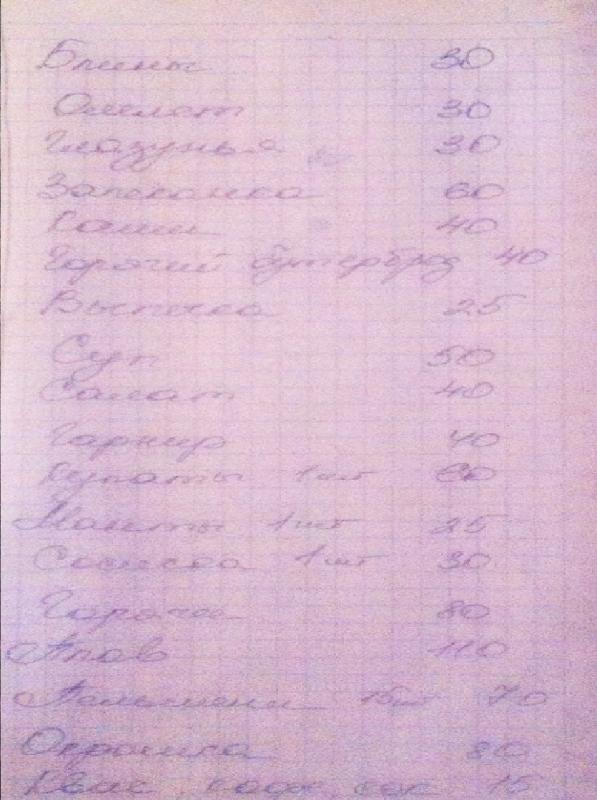 Блины 30
Омлет 30
Глазунья 30
Запеканка 60
Каши 40
Горячий бутерброд 40
Выпечка 25
Суп 50
Салат 40
Гарнир 40
Купаты 1 шт 60
Манты 1 шт 25
Сосиска 1 шт 30
Горячее 80
Плов 110
Пельмени 15шт 70
Окрошка 80
Квас, кофе, сок 15